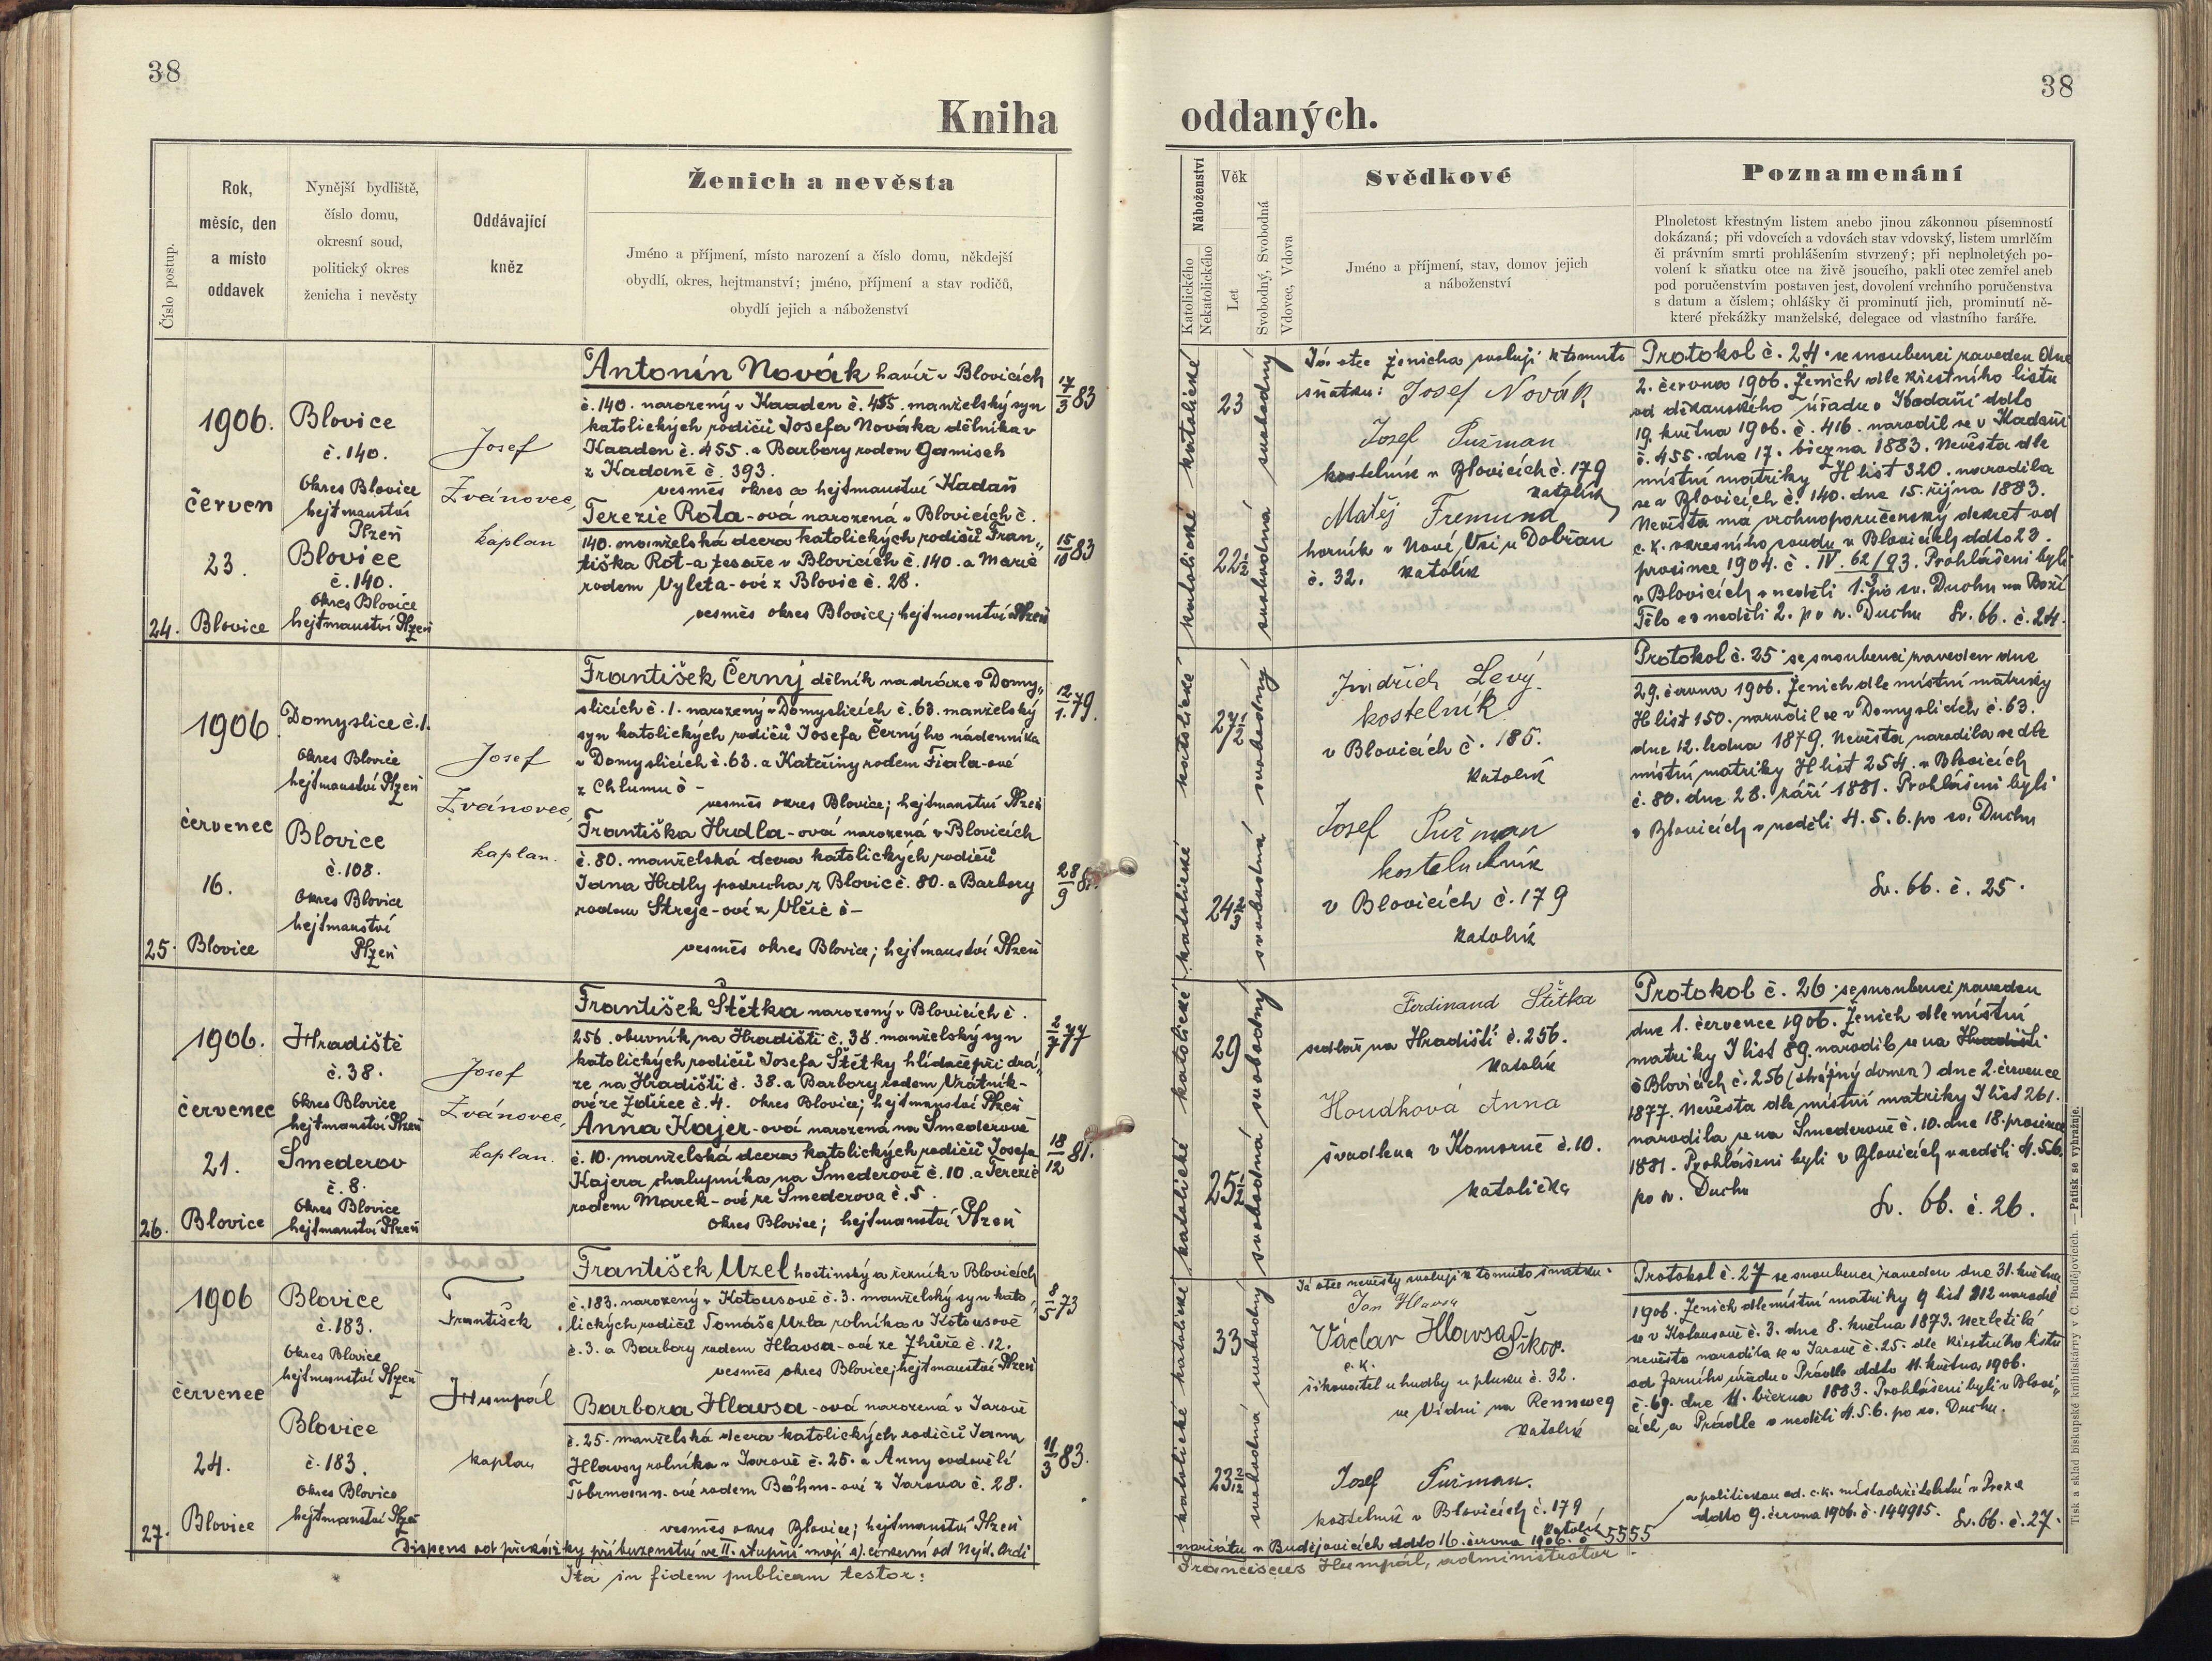 38
Kniha
Číslo postup.
Rok,
měsíc, den
a místo
oddavek
Nynější bydliště,
číslo domu,
okresní soud,
politický okres
ženicha i nevěsty
Oddávající
kněz
Ženich a nevěsta
Jméno a příjmení, místo narození a číslo domu, někdejší
obydlí, okres, hejtmanství; jméno, příjmení a stav rodičů,
obydlí jejich a náboženství
24.
1906.
červen
23.
Blovice
Blovice
č. 140.
Okres Blovice
hejtmanství
Plzeň
Blovice
č. 140.
Okres Blovice
hejtmanství Plzeň
Josef
Zvánovec,
kaplan
Antonín Novák havíř v Blovicích
č. 140. narozený v Kaaden č. 455. manželský syn
katolických rodičů Josefa Nováka dělníka v
Kaaden č. 455. a Barbory rodem Gamisch
z Kadaně č. 393.
vesměs okres a hejtmanství Kadaň
Terezie Rota-ová narozená v Blovicích č.
140. manželská dcera katolických rodičů Fran„
tiška Rot-a tesaře v Blovicích č. 140. a Marie
rodem Vyleta-ové z Blovic č. 28.
vesměs okres Blovice; hejtmanství Plzeň
17/3 83
15/10 83
25.
1906
červenec
16.
Blovice
Domyslice č. 1.
Okres Blovice
hejtmanství Plzeň
Blovice
č. 108.
Okres Blovice
hejtmanství
Plzeň
Josef
Zvánovec,
kaplan.
František Černý dělník na dráze v Domy„
slicích č. 1. narozený v Domyslicích č. 63. manželský
syn katolických rodičů Josefa Černýho nádenníka
v Domyslicích č. 63. a Kateřiny rodem Fiala-ové
z Chlumu č -
vesměs okres Blovice; hejtmanství Plzeň
Františka Hrdla-ová narozená v Blovicích
č. 80. manželská dcera katolických rodičů
Jana Hrdly podruha z Blovic č. 80. a Barbory
rodem Streje-ové z Vlčic č -
vesměs okres Blovice; hejtmanství Plzeň
12/1. 79.
28/9
26.
1906.
červenec
21.
Blovice
Hradiště
č. 38.
Okres Blovice
hejtmanství Plzeň
Smederov
č. 8.
Okres Blovice
hejtmanství Plzeň
Josef
Zvánovec,
kaplan.
František Štětka narozený v Blovicích č.
256. obuvník na Hradišti č. 38. manželský syn
katolických rodičů Josefa Štětky hlídače při drá„
ze na Hradišti č. 38. a Barbory rodem Vrátník-
ové ze Zdírce č. 4. okres Blovice; hejtmanství Plzeň
Anna Kajer-ová narozená na Smederově
č. 10. manželská dcera katolických rodičů Josefa
Kajera chalupníka na Smederově č. 10. a Terezie
rodem Marek-ové ze Smederova č. 5.
okres Blovice; hejtmanství Plzeň
2/7 77
18/12 81.
27.
1906
červenec
24.
Blovice
Blovice
č. 183.
Okres Blovice
hejtmanství Plzeň
Blovice
č. 183.
Okres Blovice
hejtmanství Plzeň
František
Humpál
kaplan
František Uzel hostinský a řezník v Blovicích
č. 183. narozený v Kotousově č. 3. manželský syn kato„
lických rodičů Tomáše Uzla rolníka v Kotousově
č. 3. a Barbory rodem Hlavsa-ové ze Zhůře č. 12.
vesměs okres Blovice; hejtmanství Plzeň
Barbora Hlavsa-ová narozená v Jarově
č. 25. manželská dcera katolických rodičů Jana
Hlavsy rolníka v Jarově č. 25. a Anny ovdovělé
Tobrmann-ové rodem Böhm-ové z Jarova č. 28.
vesměs okres Blovice; hejtmanství Plzeň
8/5 73
11/3 83.
Dispens od překážky příbuzenství ve II. stupni mají a) církevní od Nejd. Ordi
Ita in fidem publicam testor:
38
oddaných.
Náboženství
Katolického
Nekatolického
Věk
Let
Svobodný, Svobodná
Vdovec, Vdova
Svědkové
Jméno a příjmení, stav, domov jejich
a náboženství
Poznamenání
Plnoletost křestným listem anebo jinou zákonnou písemností
dokázaná; při vdovcích a vdovách stav vdovský, listem umrlčím
či právním smrti prohlášením stvrzený; při neplnoletých po-
volení k sňatku otce na živě jsoucího, pakli otec zemřel aneb
pod poručenstvím postaven jest, dovolení vrchního poručenstva
s datum a číslem; ohlášky či prominutí jich, prominutí ně-
které překážky manželské, delegace od vlastního faráře.
katolické
katolické
23
22 8/12
svobodný
svobodná
Já otec ženicha svoluji k tomuto
sňatku: Josef Novák
Josef Pužman
kostelník v Blovicích č. 179
katolík
Matěj Fremund
horník v Nové Vsi u Dobřan
č. 32. katolík
Protokol č. 24. se snoubenci zaveden dne
2. června 1906. Ženich dle křestního listu
od děkanského úřadu v Kadani ddto
19. května 1906. č. 416. narodil se v Kadani
č. 455. dne 17. března 1883. Nevěsta dle
místní matriky H list 320. narodila
se v Blovicích č. 140. dne 15. října 1883.
Nevěsta má vrchnoporučenský dekret od
c. k. okresního soudu v Blovicích ddto 23.
prosince 1904. č. IV. 62/93. Prohlášeni byli
v Blovicích v neděli 1. po sv. Duchu na Boží
Tělo a v neděli 2. po sv. Duchu Sv. 66. č. 24.
katolické
katolické
27 1/2
24 2/3
svobodný
svobodná
Jindřich Levý.
kostelník
v Blovicích č. 185.
katolík
Josef Pužman
kostelník
v Blovicích č. 179
katolík
Protokol č. 25 se snoubenci zaveden dne
29. června 1906. Ženich dle místní matriky
H list 150. narodil se v Domyslicích č. 63.
dne 12. ledna 1879. Nevěsta narodila se dle
místní matriky H list 254. v Blovicích
č. 80. dne 28. září 1881. Prohlášeni byli
v Blovicích v neděli 4. 5. 6. po sv. Duchu
Sv. 66. č. 25.
katolické
katolické
29
25 1/2
svobodný
svobodná
Ferdinand Štětka
sedlář na Hradišti č. 256.
katolík
Houdková Anna
švadlena v Komorně č. 10.
katolička
Protokol č. 26 se snoubenci zaveden
dne 1. července 1906. Ženich dle místní
matriky I list 89. narodil se na Hradišti
v Blovicích č. 256 (strážný domek) dne 2. července
1877. Nevěsta dle místní matriky I list 261.
narodila se na Smederově č. 10. dne 18. prosince
1881. Prohlášeni byli v Blovicích v neděli 4. 5. 6.
po sv. Duchu
Sv. 66. č. 26.
katolické
katolické
33
svobodný
svobodná
Já otec nevěsty svoluji k tomuto sňatku.
Jan Hlavsa
Václav Hlavsa
c. k.
šikovatel u hudby u pluku č. 32.
ve Vídni na Rennweg
katolík
Josef Pužman.
kostelník v Blovicích č. 179
katolík
Protokol č. 27 se snoubenci zaveden dne 31. května
1906. Ženich dle místní matriky list 212 narodil
se v Kotousově č. 3. dne 8. května 1873. Nezletilá
nevěsta narodila se v Jarově č. 25. dle křestního listu
od farního úřadu v Prádle ddto 11. května 1906.
č. 69. dne 11. března 1883. Prohlášeni byli v Blovi„
cích a Prádle v neděli 4. 5. 6. po sv. Duchu.
a politickou od c. k. místodržitelství v Praze
ddto 9. června 1906. č. 144915. Sv. 66. č. 27.
nariátu v Budějovicích ddto 16. června 1906. č. 5555
Franciscus Humpál, administrator
Tisk a sklad biskupské knihtiskárny v Č. Budějovicích. — Patisk se vyhražuje.